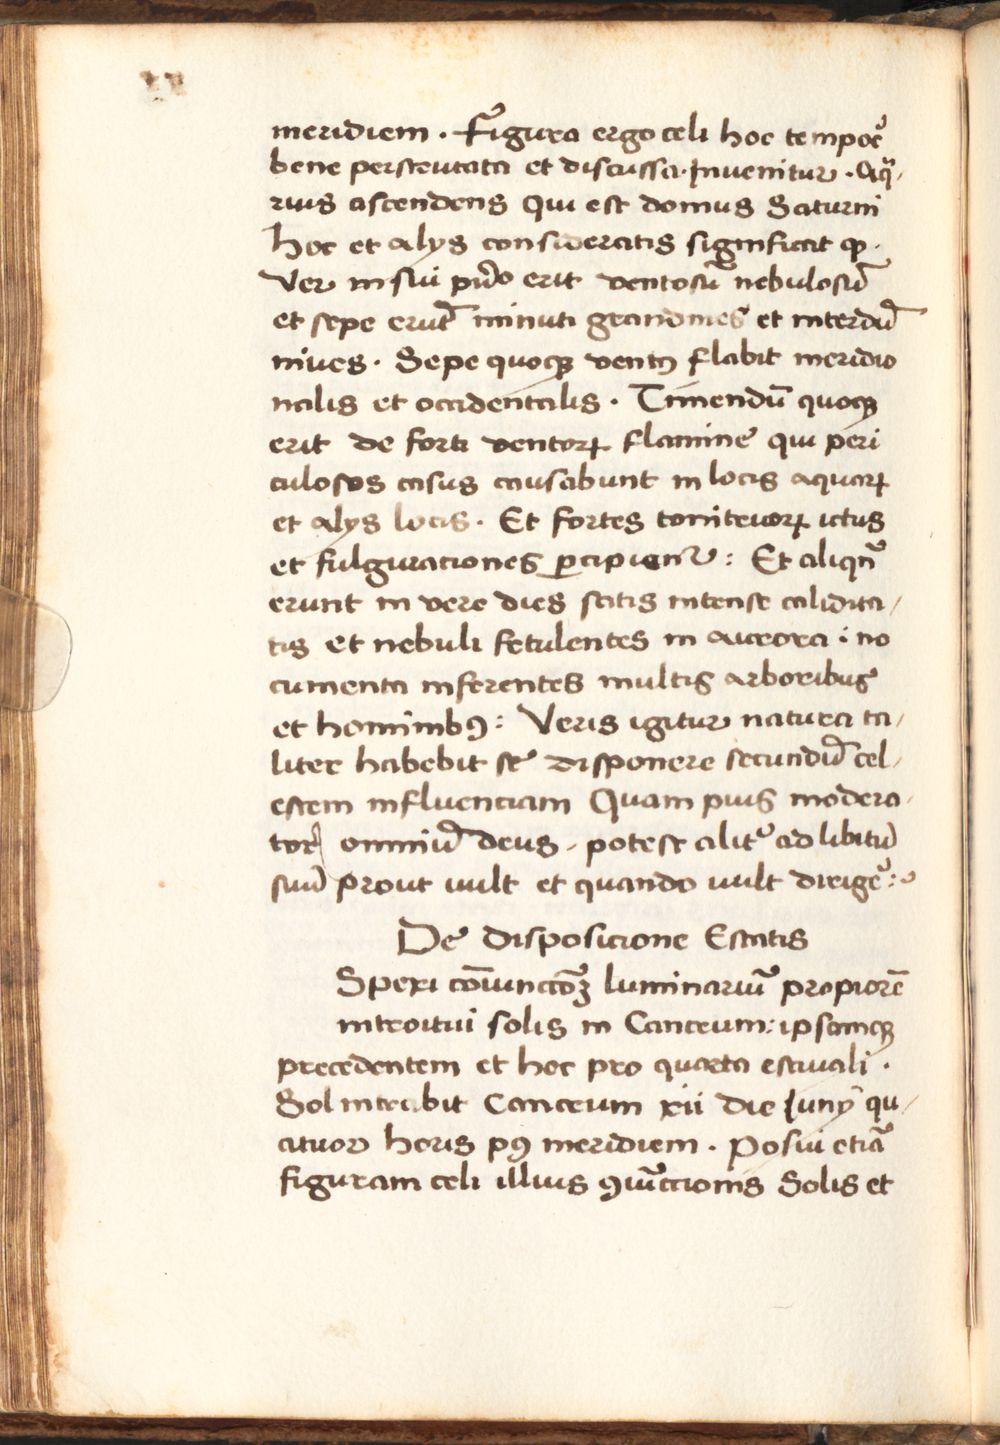 meridiem . Figura ergo celi hoc tempoꝛ̉
bene perscrutata et discussa . Inuenitur . Aqꝛ̃-
rius ascendens Qui est domus Saturni
Hoc et alÿs consideratis significat ꝙ .
Ver in sui pⁱ̃o erit ventosũ nebulosũ
et sepe erũt minuti grandines et interdũ
niues . Sepe quoqꝫ ventꝰ flabit meridio
nalis et occidentalis . Timendũ quoqꝫ
erit de forti ventoꝝ flamine qui peri
culosos casus causabunt in locis aquaꝝ
et alÿs locis . Et fortes tonitruoꝝ ictus
et fulguraciones ꝑcipient᷑ : Et aliqñ
erunt in vere dies satis intense calidita/
tis et nebuli fetulentes in aurora : no
cumenta inferentes multis arboribus
et hominibꝰ : Veris igitur natura ta/
liter habebit se disponere secundũ cel/
estem influenciam Quam pius modera-
tor omniũ deus , potest alit̉ ad libitũ
suũ prout uult et quando uult dirigẻ :~
De disposicione Estatis
Spexi cõiunctõꝫ luminariũ propiorẽ
introitui solis in Cancrum : ipsamqꝫ
precedentem et hoc pro quarta estiuali .
Sol intrabit Cancrum xii die Junÿ qu/
atuor horis pꝰ meridiem . Posui etiã
figuram celi illius ꝯiũctionis Solis et